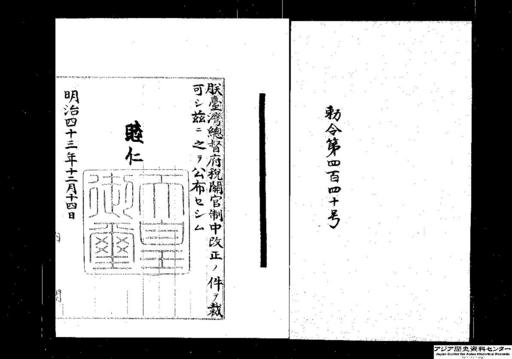 勅令第四百四十号
朕臺灣總督府税關官制中改正ノ件ヲ裁
可シ茲ニ之ヲ公布セシム
睦仁
天皇
御璽
明治四十三年十二月十四日
アジア歴史資料センター
Japan Center for Asian Historical Records